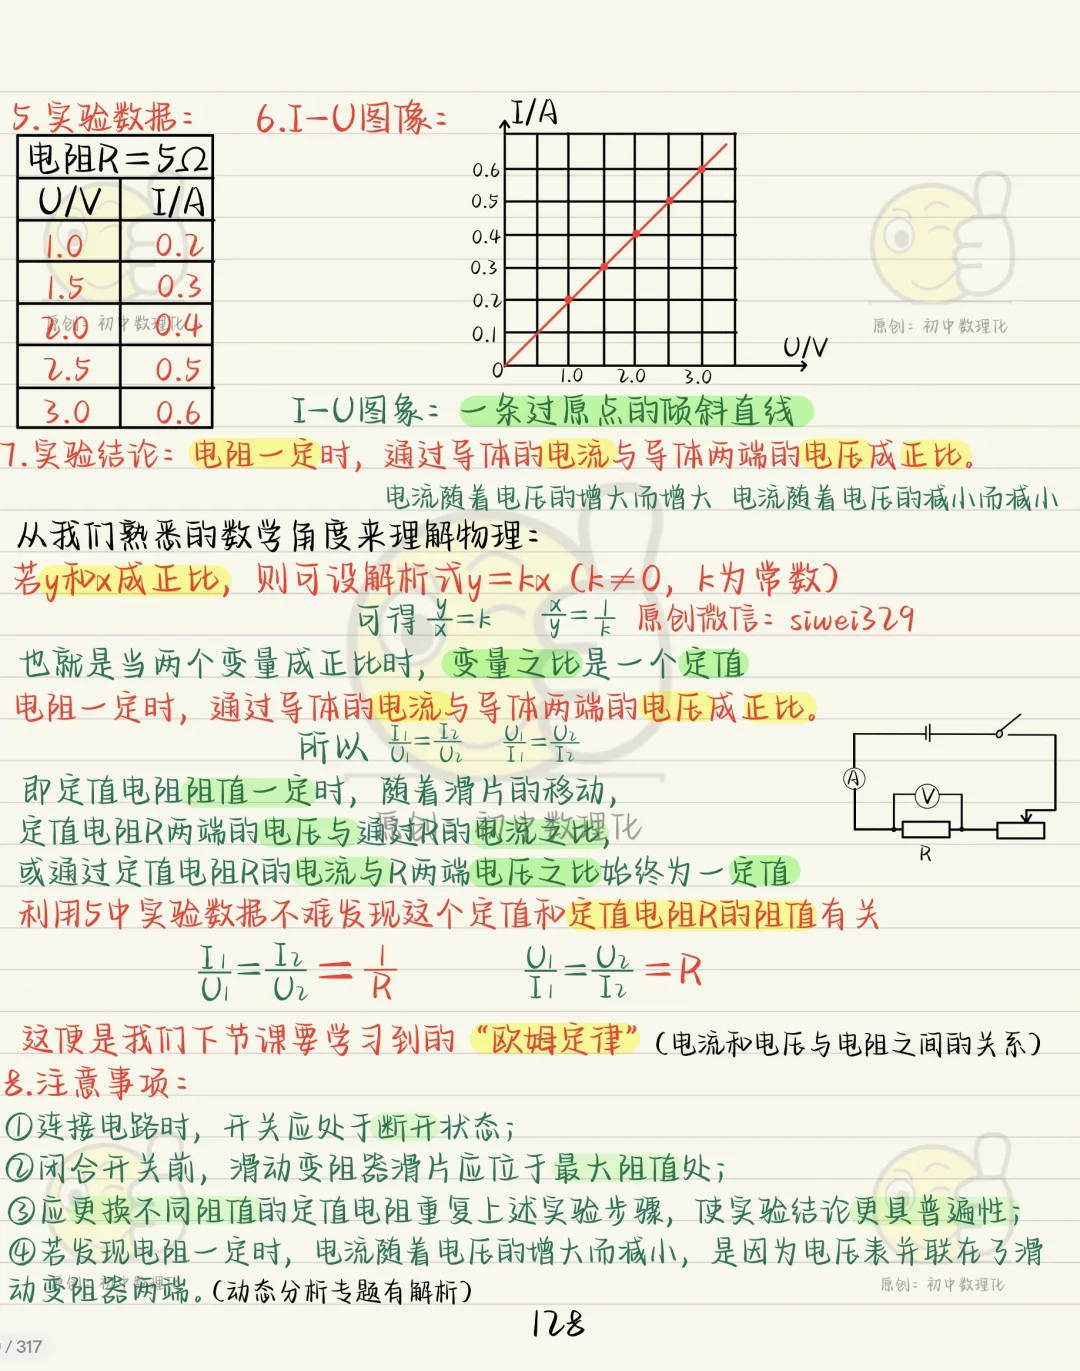 5.实验数据：
电阻R=5Ω
U/V I/A
1.0 0.2
1.5 0.3
2.0 0.4
2.5 0.5
3.0 0.6
6.I-U图像：
I/A
0.6
0.5
0.4
0.3
0.2
0.1
0
1.0 2.0 3.0
U/V
I-U图象：一条过原点的倾斜直线
7.实验结论：电阻一定时，通过导体的电流与导体两端的电压成正比。
电流随着电压的增大而增大 电流随着电压的减小而减小
从我们熟悉的数学角度来理解物理：
若y和x成正比，则可设解析式y=kx（k≠0，k为常数）
可得 y/x=k x/y=1/k 原创微信：siwei329
也就是当两个变量成正比时，变量之比是一个定值
电阻一定时，通过导体的电流与导体两端的电压成正比。
所以 I₁/U₁=I₂/U₂ U₁/I₁=U₂/I₂
即定值电阻阻值一定时，随着滑片的移动，
定值电阻R两端的电压与通过R的电流之比，
或通过定值电阻R的电流与R两端电压之比始终为一定值
A
V
R
利用5中实验数据不难发现这个定值和定值电阻R的阻值有关
I₁/U₁=I₂/U₂=1/R U₁/I₁=U₂/I₂=R
这便是我们下节课要学习到的“欧姆定律”（电流和电压与电阻之间的关系）
8.注意事项：
①连接电路时，开关应处于断开状态；
②闭合开关前，滑动变阻器滑片应位于最大阻值处；
③应更换不同阻值的定值电阻重复上述实验步骤，使实验结论更具普遍性；
④若发现电阻一定时，电流随着电压的增大而减小，是因为电压表并联在了滑
动变阻器两端。（动态分析专题有解析）
128
/ 317
原创：初中数理化
原创：初中数理化
原创：初中数理化
原创：初中数理化
原创：初中数理化